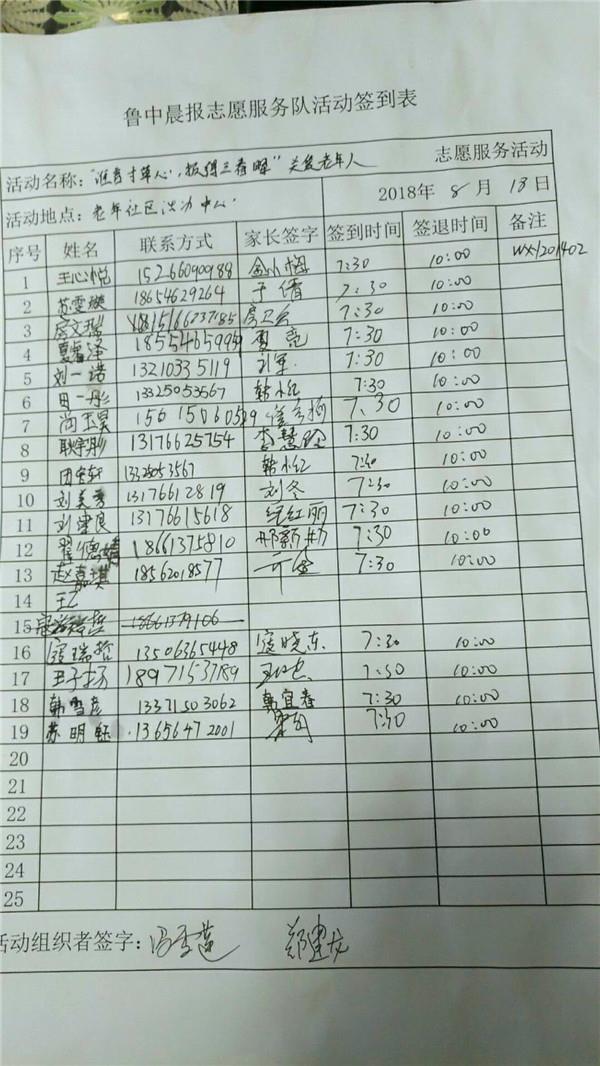 鲁中晨报志愿服务队活动签到表
志愿服务活动
活动名称：“谁言寸草心，报得三春晖”关爱老年人
活动地点：老年社区活动中心 2018年 8 月 18 日
序号 姓名 联系方式 家长签字 签到时间 签退时间 备注
1 王心悦 15266090988 7:30 10:00 WXY201402
2 苏雯 18654629264 于倩 7:30 10:00
3 15166237185 房卫 7:30 10:00
4 夏 1855465999 夏亮 7:30 10:00
5 刘一诺 13210335119 刘军 7:30 10:00
6 田一彤 13325053567 韩 7:30 10:00
7 尚玉昊 7:30 10:00
8 耿宇彤 13176625754 李慧 7:30 10:00
9 田 1325053567 韩 7:30 10:00
10 刘美秀 13176612819 刘冬 7:30 10:00
11 刘 良 13176615618 红丽 7:30 10:00
12 德 18661375810 邢新 7:30 10:00
13 赵嘉琪 18562018577 7:30 10:00
14 王
15 18661379106
16 寇瑞哲 13506365448 寇晓东 7:30 10:00
17 王子扬 18971537189 7:30 10:00
18 韩雪彦 13371503062 韩宜春 7:30 10:00
19 苏明钰 13656472001 7:30 10:00
20
21
22
23
24
25
活动组织者签字：冯秀莲 郑建龙